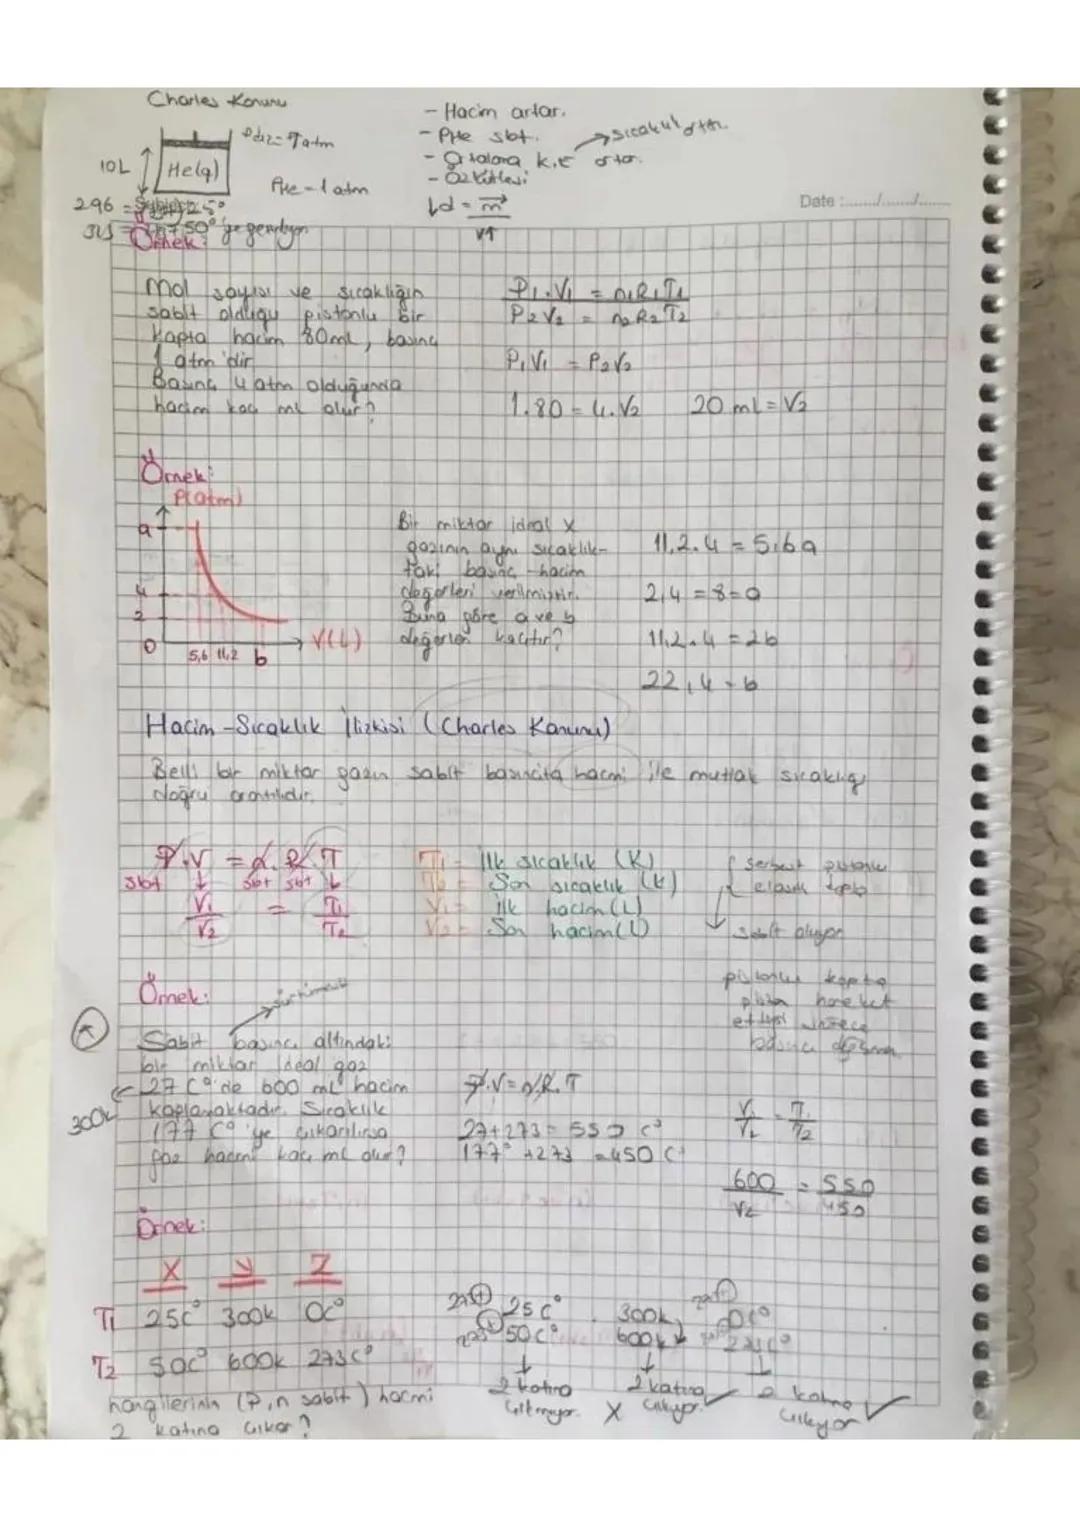 Charles Kanunu
Pdış = 1 atm
10L
He(g)
PHe = 1 atm
- Hacim artar.
- PHe sbt.
→ sıcaklık artar.
- Ortalama k.E artar.
- Özkütlesi
d = m
V↑
Date :......../......../........
296 = 25°
50° 'ye geniliyor
Örnek:
Mol sayısı ve sıcaklığın
sabit olduğu pistonlu bir
kapta hacim 80mL, basınç
1 atm 'dir
Basınç 4 atm olduğunda
hacim kaç mL olur?
P1.V1 = n1R1T1
P2V2 = n2R2T2
P1V1 = P2V2
1.80 = 4.V2 20 mL = V2
Örnek:
P(atm)
a
4
2
0
5,6 11,2 b
V(L)
Bir miktar ideal X
gazının aynı sıcaklık-
taki basınç-hacim
değerleri verilmiştir.
Buna göre a ve b
değerleri kaçtır?
11,2.4 = 5,6a
2,4 = 8 = a
11,2.4 = 2b
22,4 = b
Hacim-Sıcaklık İlişkisi (Charles Kanunu)
Belli bir miktar gazın sabit basınçta hacmi ile mutlak sıcaklığı
doğru orantılıdır.
P.V = n.R.T
sbt ↓ sbt sbt ↓
V1 = T1
V2 T2
T1 = İlk sıcaklık (K)
T2 = Son sıcaklık (K)
V1 = İlk hacim (L)
V2 = Son hacim (L)
serbest pistonlu
elastik
sabit oluyor
pistonlu kapta
piston hareket
ettiği sürece
basınç
Örnek:
Sabit basınç altındaki
bir miktar ideal gaz
27 C° de 600 mL hacim
300K
kaplamaktadır. Sıcaklık
177 C° 'ye çıkarılırsa
gaz hacmi kaç mL olur?
P.V = n.R.T
27+273 = 550 C°
177° +273 = 450 C°
V1 = T1
V2 T2
600 = 550
V2 450
Örnek:
X Y Z
T1 25C° 300K 0C°
T2 50C° 600K 273C°
hangilerinin (P,n sabit) hacmi
2 katına çıkar?
273 + 25C°
273 + 50C°
↓
2 katına
çıkmıyor. X
300K
600K
↓
2 katına
çıkıyor. ✓
273 + 0C°
273C°
↓
2 katına
çıkıyor ✓